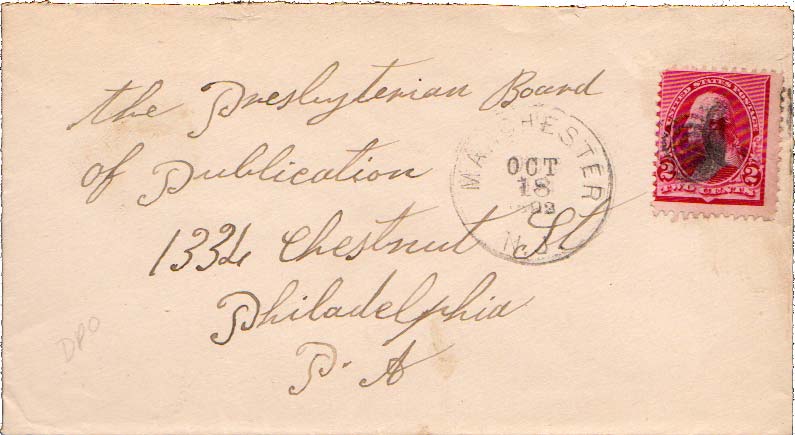 the Presbyterian Board
of Publication
1334 Chestnut St
Philadelphia
P. A
MANCHESTER
OCT
18
92
N.J.
UNITED STATES POSTAGE
2 2
TWO CENTS
DPO